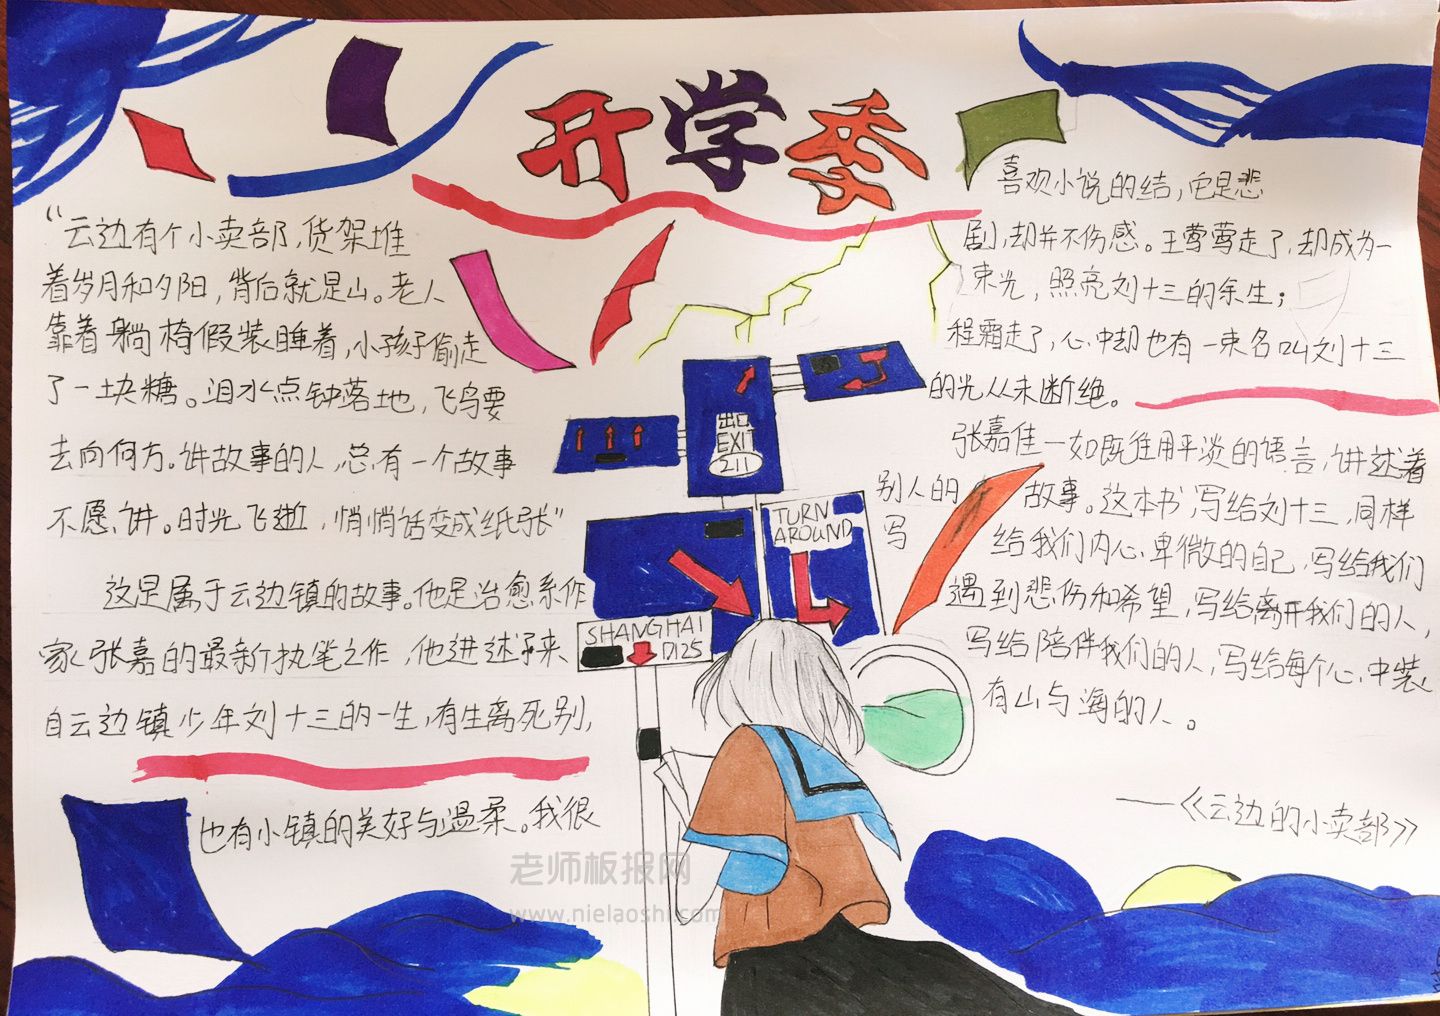 开学季
“云边有个小卖部，货架堆
着岁月和夕阳，背后就是山。老人
靠着躺椅假装睡着，小孩子偷走
了一块糖。泪水点钟落地，飞鸟要
去向何方。讲故事的人，总有一个故事
不愿讲。时光飞逝，悄悄话变成纸张”
这是属于云边镇的故事。他是治愈系作
家张嘉的最新执笔之作，他进述了来
自云边镇少年刘十三的一生，有生离死别，
也有小镇的美好与温柔。我很
喜欢小说的结，它是悲
剧，却并不伤感。王莺莺走了，却成为一
束光，照亮刘十三的余生；
程霜走了，心中却也有一束名叫刘十三
的光从未断绝。
张嘉佳一如既往用平淡的语言，讲述着
别人的故事。这本书，写给刘十三，同样
写给我们内心卑微的自己，写给我们
遇到悲伤和希望，写给离开我们的人，
写给陪伴我们的人，写给每个心中装
有山与海的人。
——《云边的小卖部》
出口
EXIT
211
TURN
AROUND
SHANGHAI
D125
老师板报网
www.nielaoshi.com